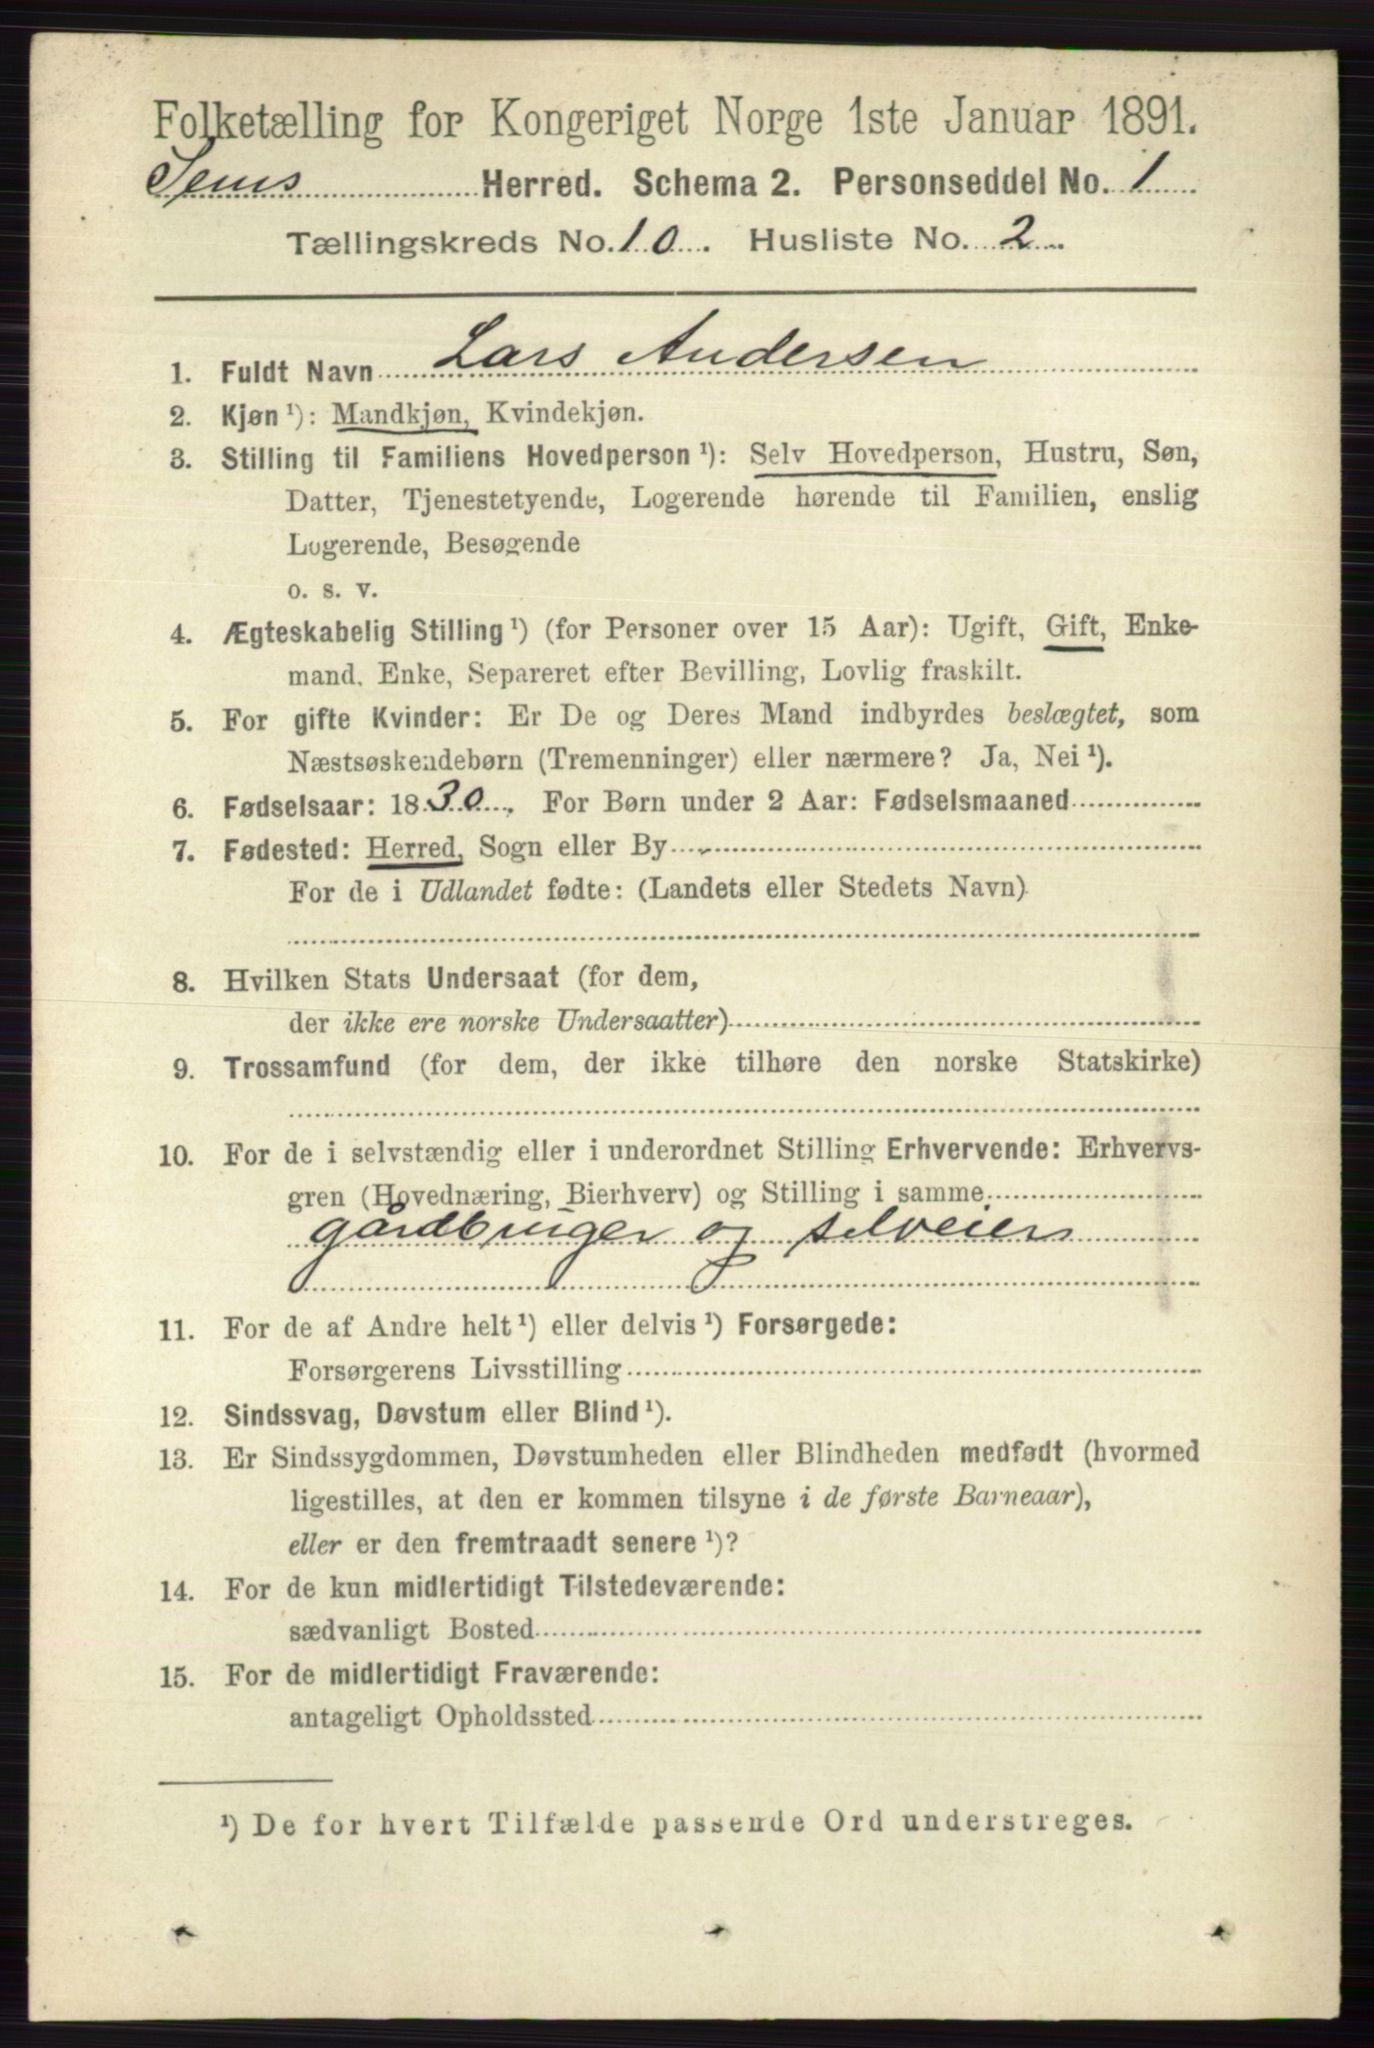 Folketælling for Kongeriget Norge 1ste Januar 1891.
Sems Herred. Schema 2. Personseddel No. 1
Tællingskreds No. 10. Husliste No. 2
1. Fuldt Navn Lars Andersen
2. Kjøn ¹): Mandkjøn, Kvindekjøn.
3. Stilling til Familiens Hovedperson ¹): Selv Hovedperson, Hustru, Søn,
Datter, Tjenestetyende, Logerende hørende til Familien, enslig
Logerende, Besøgende
o. s. v.
4. Ægteskabelig Stilling ¹) (for Personer over 15 Aar): Ugift, Gift, Enke-
mand, Enke, Separeret efter Bevilling, Lovlig fraskilt.
5. For gifte Kvinder: Er De og Deres Mand indbyrdes beslægtet, som
Næstsøskendebørn (Tremenninger) eller nærmere? Ja, Nei ¹).
6. Fødselsaar: 1830. For Børn under 2 Aar: Fødselsmaaned
7. Fødested: Herred, Sogn eller By
For de i Udlandet fødte: (Landets eller Stedets Navn)
8. Hvilken Stats Undersaat (for dem,
der ikke ere norske Undersaatter)
9. Trossamfund (for dem, der ikke tilhøre den norske Statskirke)
10. For de i selvstændig eller i underordnet Stilling Erhvervende: Erhvervs-
gren (Hovednæring, Bierhverv) og Stilling i samme
gårdbruger og selveier
11. For de af Andre helt ¹) eller delvis ¹) Forsørgede:
Forsørgerens Livsstilling
12. Sindssvag, Døvstum eller Blind ¹).
13. Er Sindssygdommen, Døvstumheden eller Blindheden medfødt (hvormed
ligestilles, at den er kommen tilsyne i de første Barneaar),
eller er den fremtraadt senere ¹)?
14. For de kun midlertidigt Tilstedeværende:
sædvanligt Bosted
15. For de midlertidigt Fraværende:
antageligt Opholdssted
¹) De for hvert Tilfælde passende Ord understreges.